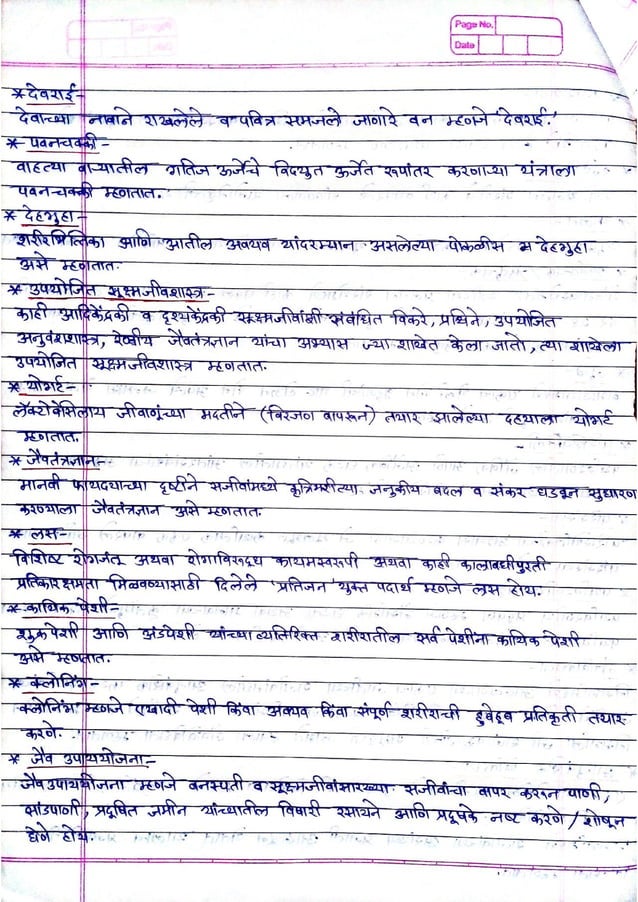 Page No.
Date
* देवराई-
देवाच्या नावाने राखलेले व पवित्र समजले जाणारे वन म्हणजे 'देवराई.'
* पवनचक्की-
वाहत्या वाऱ्यातील गतिज ऊर्जेचे विद्युत ऊर्जेत रूपांतर करणाऱ्या यंत्राला
पवनचक्की म्हणतात.
* देहगुहा-
शरीरभित्तिका आणि आतील अवयव यांदरम्यान असलेल्या पोकळीस देहगुहा
असे म्हणतात.
* उपयोजित सूक्ष्मजीवशास्त्र-
काही आदिकेंद्रकी व दृश्यकेंद्रकी सूक्ष्मजीवांशी संबंधित विकरे, प्रथिने, उपयोजित
अनुवंशशास्त्र, रेण्वीय जैवतंत्रज्ञान यांचा अभ्यास ज्या शाखेत केला जातो, त्या शाखेला
उपयोजित सूक्ष्मजीवशास्त्र म्हणतात.
* योगर्ट-
लॅक्टोबॅसिलाय जीवाणूंच्या मदतीने (विरजण वापरून) तयार झालेल्या दह्याला योगर्ट
म्हणतात.
* जैवतंत्रज्ञान-
मानवी फायदयाच्या दृष्टीने सजीवांमध्ये कृत्रिमरीत्या जनुकीय बदल व संकर घडवून सुधारणा
करण्याला जैवतंत्रज्ञान असे म्हणतात.
* लस-
विशिष्ट रोगजंतू अथवा रोगाविरुद्ध कायमस्वरूपी अथवा काही कालावधीपुरती
प्रतिकारक्षमता मिळवण्यासाठी दिलेले 'प्रतिजन' युक्त पदार्थ म्हणजे लस होय.
* कायिक पेशी-
शुक्रपेशी आणि अंडपेशी यांच्याव्यतिरिक्त शरीरातील सर्व पेशींना कायिक पेशी
असे म्हणतात.
* क्लोनिंग-
क्लोनिंग म्हणजे एखादी पेशी किंवा अवयव किंवा संपूर्ण शरीराची हुबेहूब प्रतिकृती तयार
करणे.
* जैव उपाययोजना-
जैवउपाययोजना म्हणजे वनस्पती व सूक्ष्मजीवांसारख्या सजीवांचा वापर करून पाणी,
सांडपाणी, प्रदूषित जमीन यांच्यातील विषारी रसायने आणि प्रदूषके नष्ट करणे/शोषून
घेणे होय.